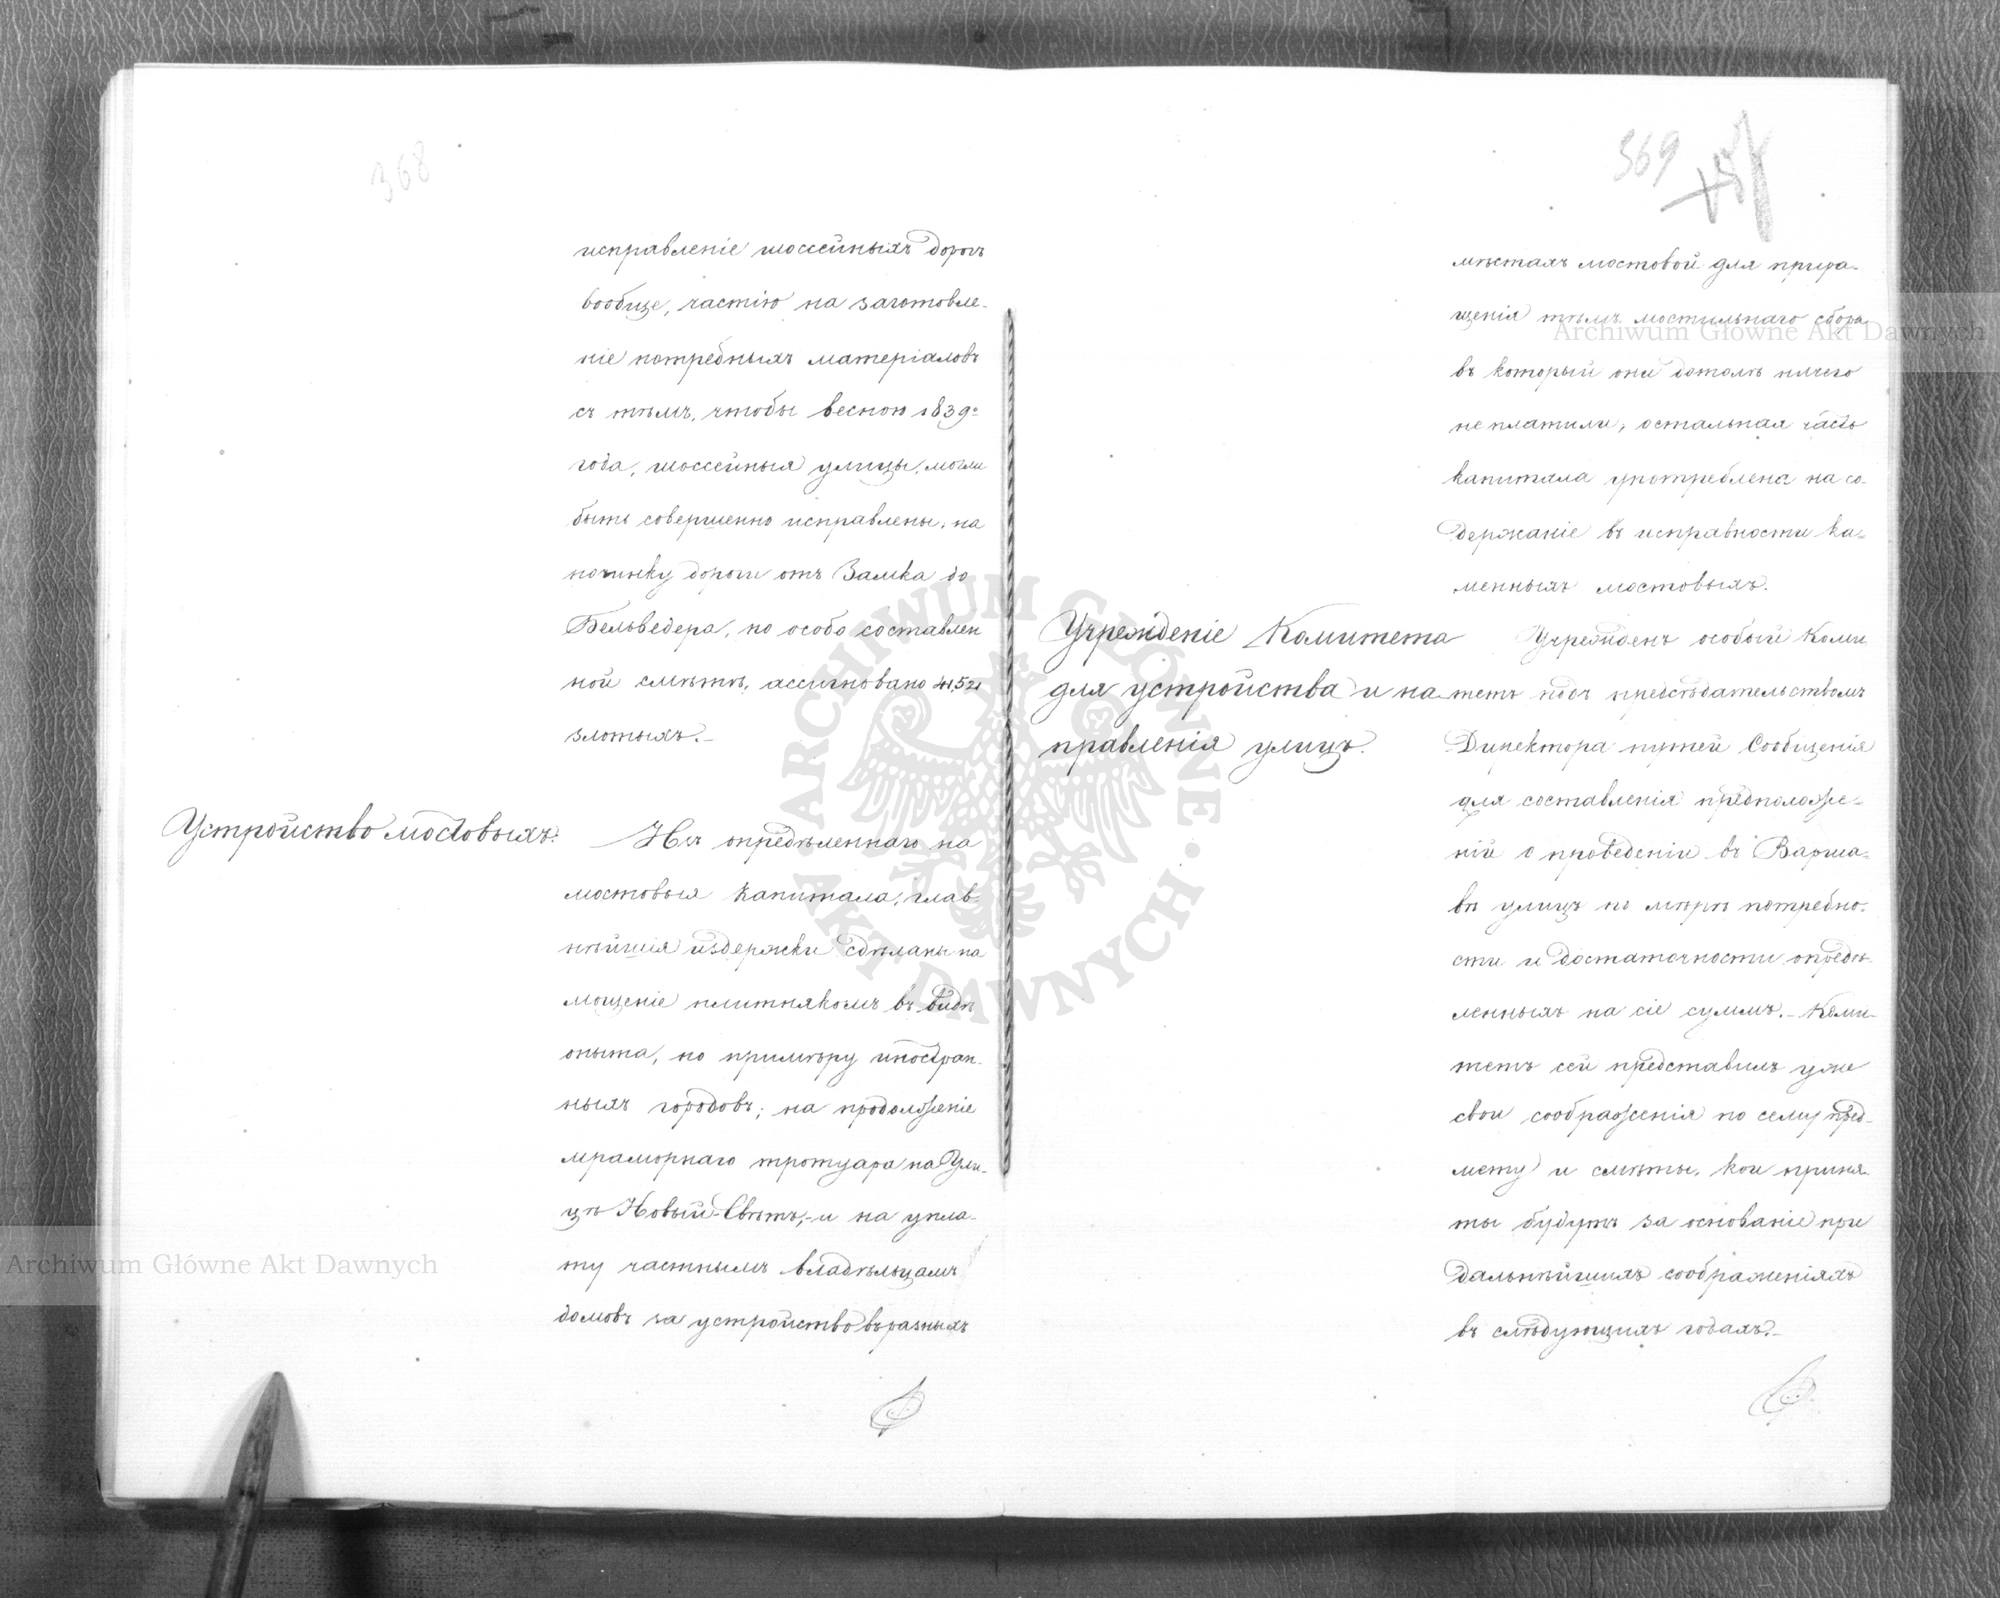 368
исправленіе шоссейныхъ дорогъ
вообще, частію на заготовле-
ніе потребныхъ матеріаловъ
съ тѣмъ, чтобы весною 1839го
года, шоссейныя улицы, могли
быть совершенно исправлены; на
починку дороги отъ Замка до
Бельведера, по особо составлен
ной смѣтѣ, ассигновано 41,521
злотыхъ.-
Устройство мостовыхъ.
Изъ опредѣленнаго на
мостовыя капитала, глав-
нѣйшія издержки сдѣланы на
мощеніе плитнякомъ въ видѣ
опыта, по примѣру иностран-
ныхъ городовъ; на продолженіе
мраморнаго тротуара на Ули-
цѣ Новый-Свѣтъ,-и на упла-
ту частнымъ владѣльцамъ
домовъ за устройство въ разныхъ
369
мѣстахъ мостовой для прира-
щенія тѣмъ мостильнаго сбора
въ который они дотолѣ ничего
не платили; остальная часть
капитала употреблена на со-
держаніе въ исправности ка-
менныхъ мостовыхъ.
Учрежденіе Комитета
для устройства и на-
правленія улицъ.
Учрежденъ особый Коми
тетъ подъ предсѣдательствомъ
Директора путей Сообщенія
для составленія предположе-
ній о проведеніи въ Варша-
вѣ улицъ по мѣрѣ потребно-
сти и достаточности опредѣ-
ленныхъ на сіе суммъ.- Коми-
тетъ сей представилъ уже
свои соображенія по сему пред-
мету и смѣты, кои приня-
ты будутъ за основаніе при
дальнѣйшихъ соображеніяхъ
въ слѣдующихъ годахъ.-
Archiwum Główne Akt Dawnych
Archiwum Główne Akt Dawnych
ARCHIWUM GŁÓWNE · AKT DAWNYCH ·